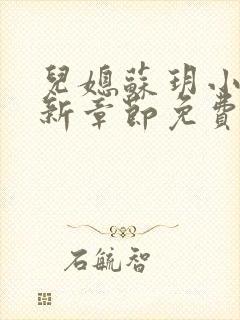 兒媳蘇玥小
新章節免費
石毓智